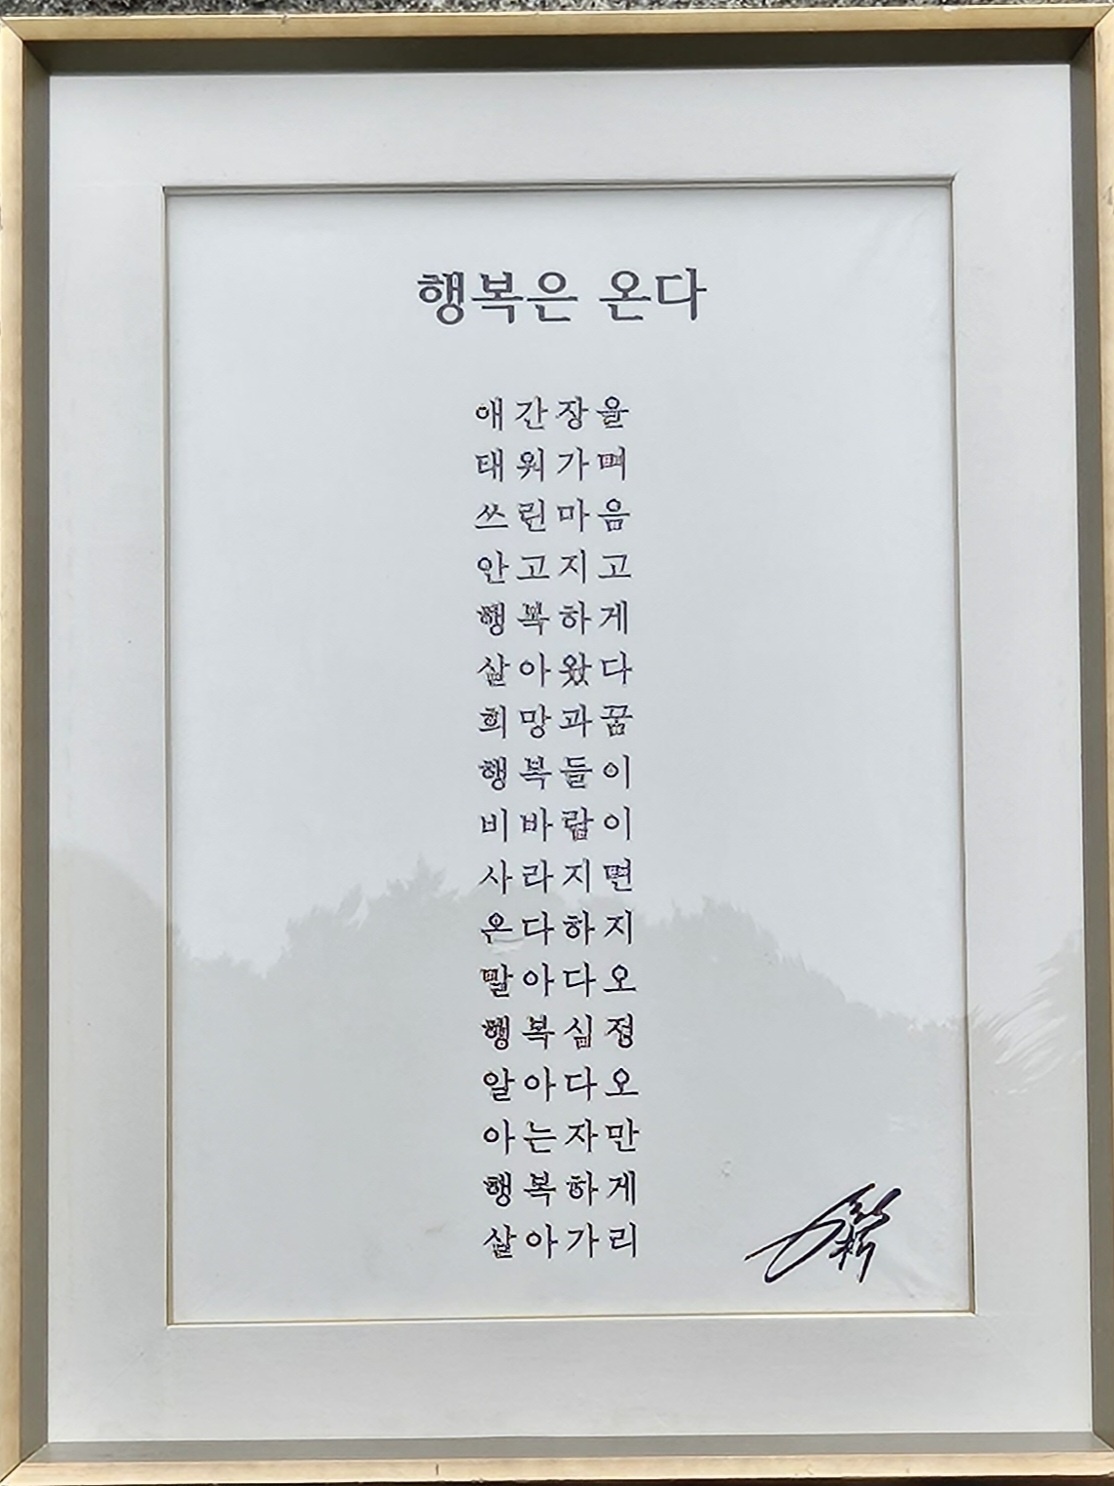 행복은 온다
애간장을
태워가며
쓰린마음
안고지고
행복하게
살아왔다
희망과꿈
행복들이
비바람이
사라지면
온다하지
말아다오
행복심정
알아다오
아는자만
행복하게
살아가리